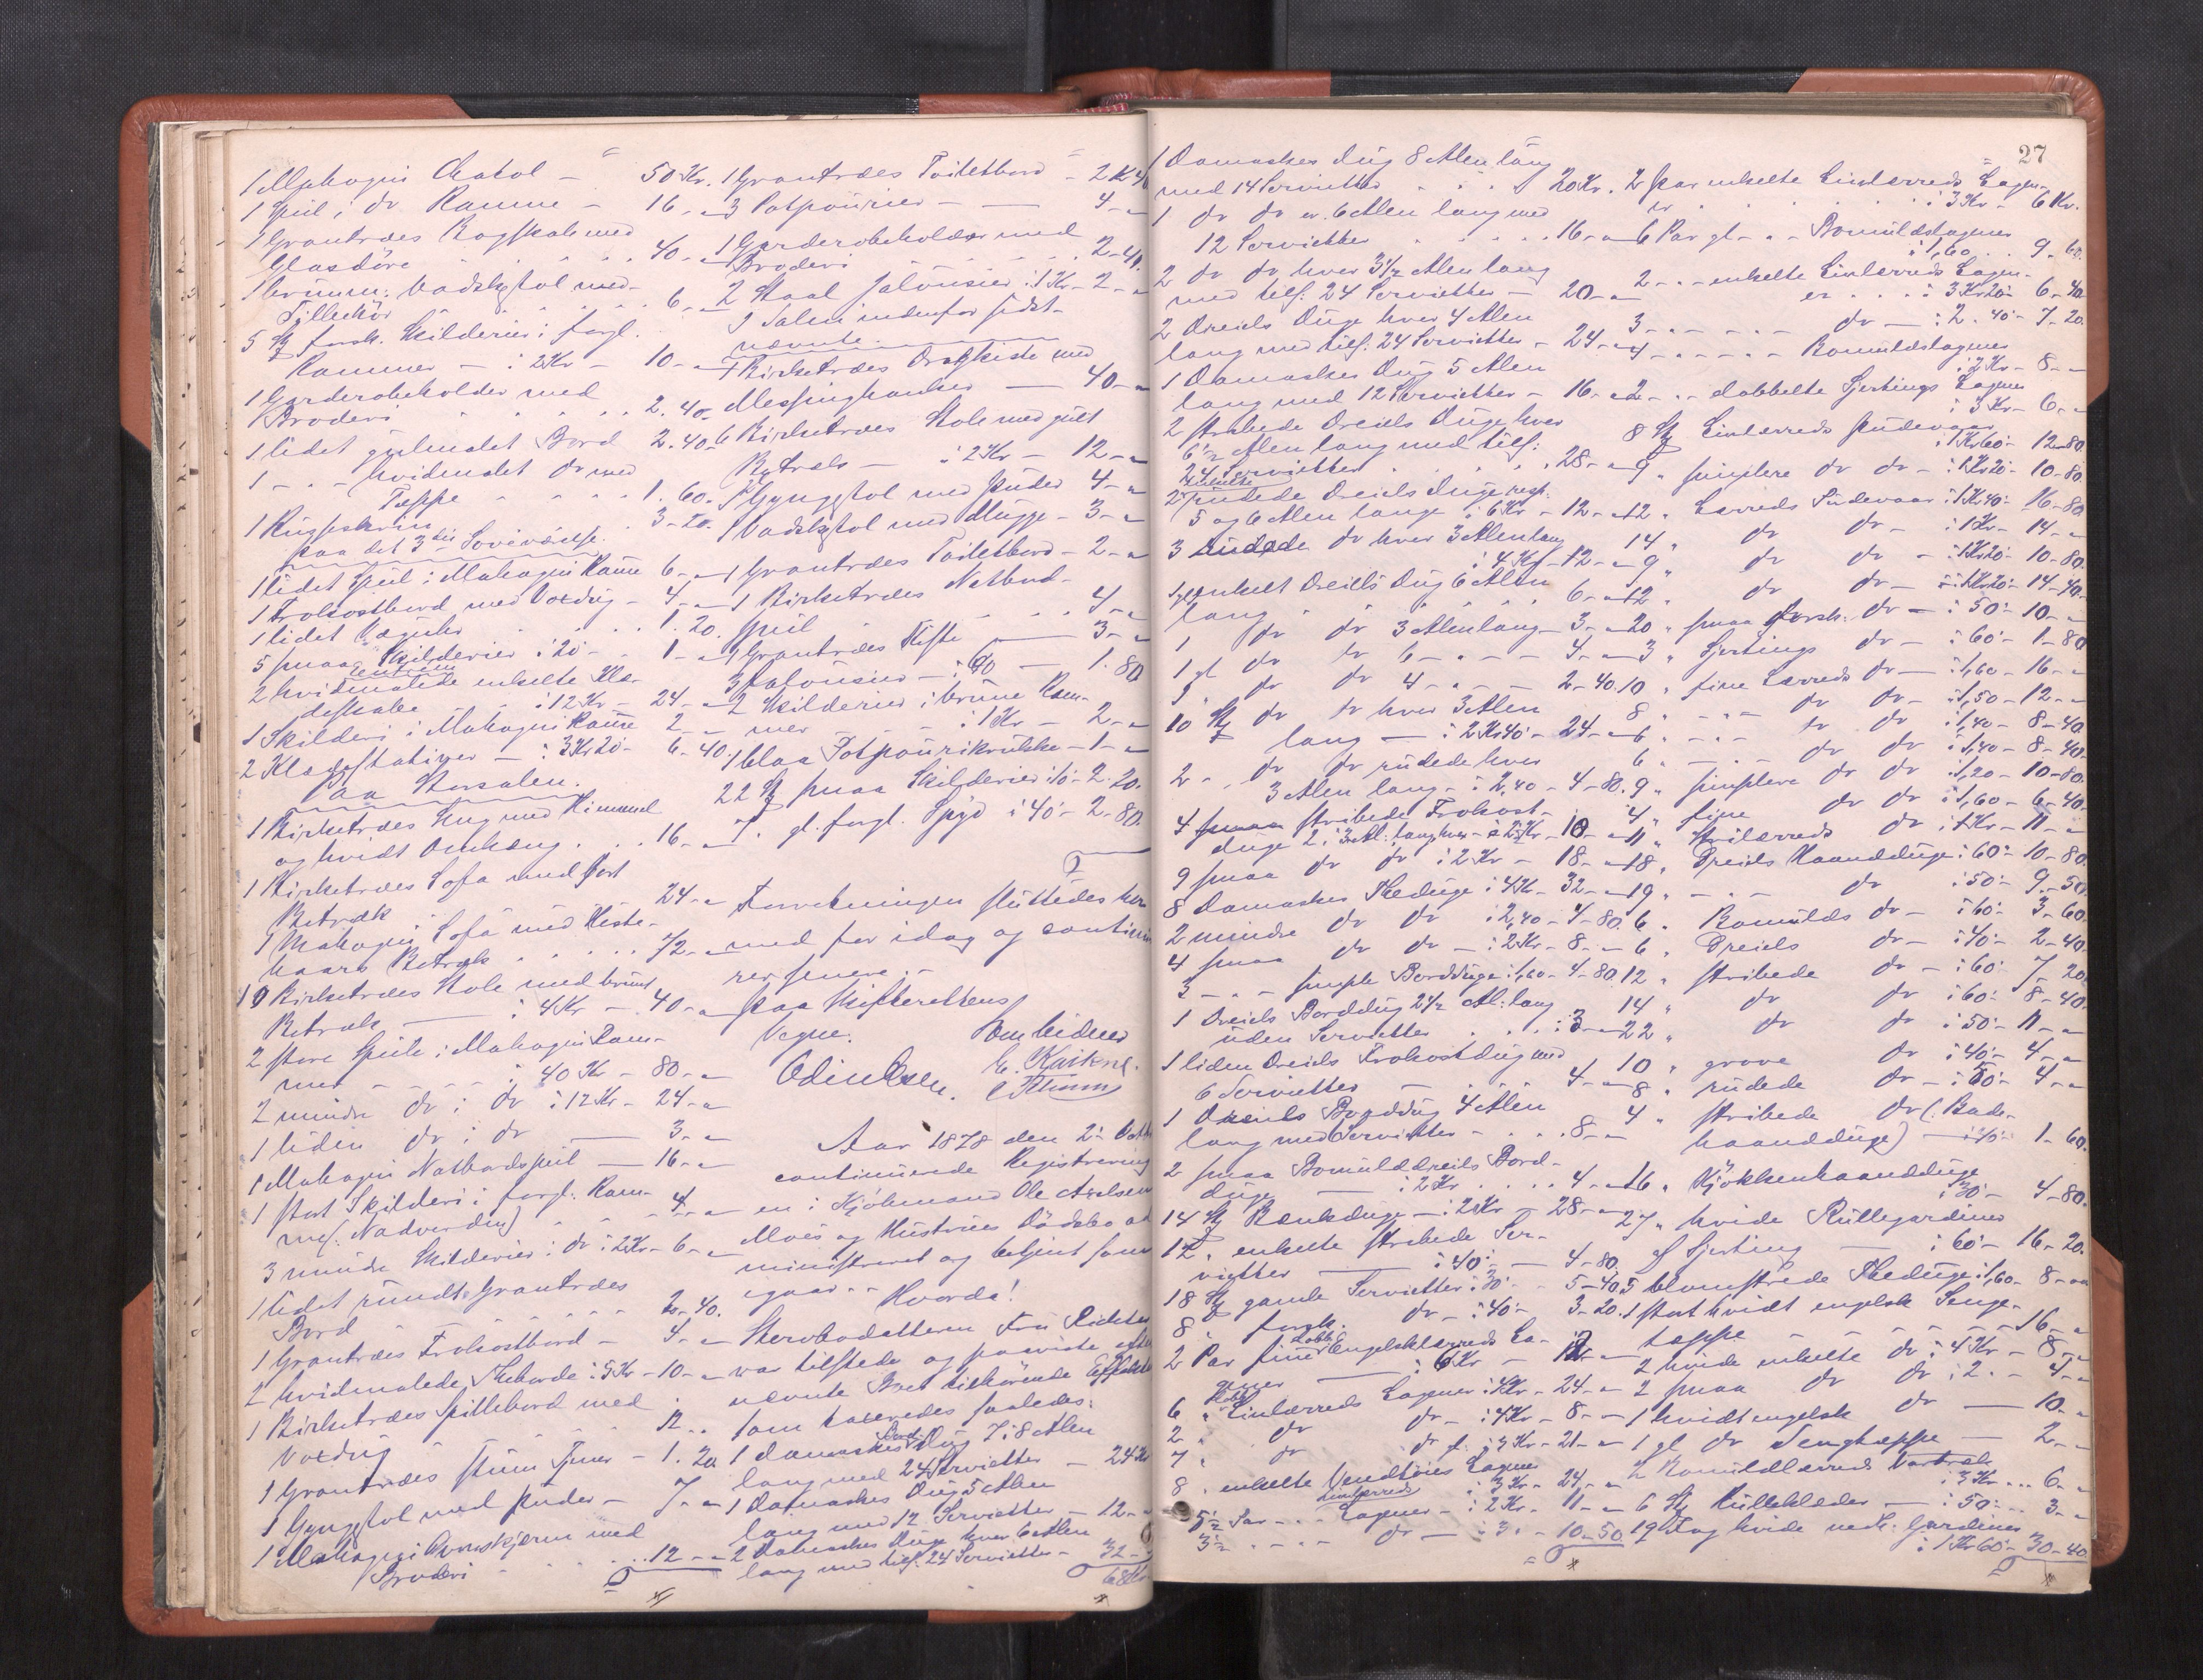 1 Mahogni Chatol - 50 Kr.
1 Speil i do Ramme - 16 - "
1 Grantræes Bogskab med
Glasdöre . . . . 40 - "
1 Vadskstol med
Tilbehör . . . . 6 - "
5 St forsk. Skilderier i forgl.
Rammer - à 2 Kr - 10 - "
1 Garderobeholder med
Broderi . . . . 2. 40.
1 lidet gulmalet Bord 2. 40.
1 - " - hvidmalet do med
Teppe . . . . 1. 60.
1 Rugsskrin . . 3 - 20.
paa det 3die Soveværelse.
1 lidet Speil i Mahogni Ramme 6 - "
1 Frokostbord med Voxdug - 4 - "
1 lidet . . . 1. 20.
5 smaa Skilderier à 20 - 1 - "
2 hvidmalede enkelte Klæ-
deskabe à 12 Kr - 24 - "
1 Skilderi i Mahogni Ramme 2 - "
2 Klædestativer - à 3 Kr 20 - 6 - 40.
Paa Storsalen.
1 Birketræes Seng med Himmel
og hvidt Omhæng . . . 16 - "
1 Birketræes Sofa med sort
Betræk 24 - "
1 Mahogni Sofa med Heste-
haars Betræk . . . . 72 - "
10 Birketræes Stole med brunt
Betræk — à 4 Kr - 40 - "
2 store Speile i Mahogni Ram-
mer - - - à 40 Kr - 80 - "
2 mindre do i do à 12 Kr - 24 - "
1 liden do i do — 3 - "
1 Mahogni Natbordspeil — 16 - "
1 stort Skilderi i forgl. Ram-
me (Nadverden) . . . 4 - "
3 mindre Skilderier i do à 2 Kr - 6 - "
1 lidet rundt Grantræes
Bord - - - - 2 - 40.
1 Grantræes Frokostbord - 4 - "
2 hvidmalede Theborde à 5 Kr - 10 - "
1 Birketræes Spillebord med
Voxdug 12 - "
1 Grantræes stum Tjener - 1. 20
1 Gyngestol med Puder - 7 - "
1 Mahogni Ovnskjerm med
Broderi . . . 12 - "
1 Grantræes Toiletbord - 2 Kr 40
3 Potpourier - — 4 - "
1 Garderobeholder med
Broderi . . . . 2 - 40.
2 Staal Jalousier à 1 Kr - 2 - "
I Salen indenfor sidst-
nævnte.
1 Birketræes Dragkiste med
Messinghanker — 40 - "
6 Birketræes Stole med gult
Betræk — à 2 Kr - 12 - "
1 Gyngestol med Puder 4 - "
1 Vadskstol med Mugge - 3 - "
1 Grantræes Toiletbord - 2 - "
1 Birketræes Natbord-
speil . . . . 4 - "
1 Grantræes Kiste — 3 - "
3 Jalousier - à 60 — 1. 80
2 Skilderier i brune Ram-
mer - - - à 1 Kr - 2 - "
1 blaa Potpourikrukke - 1 - "
22 St smaa Skilderier à 10 - 2. 20.
7 " gl. forgl. Spyd à 40 - 2 - 80.
Forretningen sluttedes her
med for idag og continue
res senere. -
Paa Skifterettens
Vegne. Som Vidner
Odin Olsen.
Aar 1878 den 2de Octb
continuerede Registrering
en i Kjöbmand Ole Axelsen
Moes og Hustrues Dödsbo ad
ministreret og betjent som
igaar - - Hvorda!
Sterbodatteren Fru Richter
var tilstede og paaviste efter
nævnte Boet tilhörende Effekter
som taxeredes saaledes:
1 Damaskes Bord Dug 7 à 8 Alen
lang med 24 Servietter - 24 Kr
1 Damaskes Dug 5 Alen
lang med 12 Servietter - 12 - "
2 Damaskes Duge hver 6 Alen
lang med tils. 24 Servietter - 32 - "
68 Kr
27
1 Damaskes Dug 8 Alen lang
med 14 Servietter . . . 20 Kr.
1 do do er. 6 Alen lang med
12 Servietter . . . . 16 - "
2 do do hver 3 1/2 Alen lang
med tils. 24 Servietter - 20 - "
2 Dreiels Duge hver 4 Alen
lang med tils. 24 Servietter - 24 - "
1 Damaskes Dug 5 Alen
lang med 12 Servietter - 16 - "
2 stribede Dreiels Duge hver
6 1/2 Alen lang med tils.
24 Servietter . . . . 28 - "
2 enkelte rudede Dreiels Duge resp.
5 og 6 Alen lange à 6 Kr - 12 - "
3 rudede do hver 3 Alen lang
à 4 Kr - 12 - "
1 gl enkelt Dreiels Dug 6 Alen
lang . . . . 6 - "
1 do do 3 Alen lang - 3 - "
1 gl do do 6 - " - - 4 - "
1 " do do 4 - " - - 2 - 40.
10 St do do hver 3 Alen
lang — à 2 Kr 40 - 24 - "
2 " do do rudede hver
3 Alen lang - à 2,40 - 4 - 80.
4 stribede Frokost-
duge 2 à 3 Al: lang hver - à 2 1/2 Kr - 10 - "
9 smaa do do à 2 Kr - 18 - "
8 Damaskes Theduge à 4 Kr - 32 - "
2 mindre do do à 2,40 - 4 - 80.
4 smaa do do - à 2 Kr - 8 - "
3 - " - simple Bordduge à 1,60 - 4 - 80.
1 Dreiels Borddug 2 1/2 Al: lang
uden Servietter . . . 3 - "
1 liden Dreiels Frokostdug med
6 Servietter - - - - 4 - "
1 Dreiels Borddug 4 Alen
lang med Servietter - . . . 8 - "
2 smaa Bomulddreiels Bord-
duge — à 2 Kr . . . . 4 - "
14 St Bænkeduge - à 2 Kr - 28 - "
12 " enkelte stribede Ser-
vietter — à 40 - 4 - 80.
18 St gamle Servietter à 30 - 5 - 40.
8 " forsk. do - à 40 - 3 - 20.
2 Par fine dobb. Engelsklærreds La-
gener — à 6 Kr - 12 - "
6 " dobb. Linlærreds Lagener à 4 Kr - 24 - "
2 " do do - à 4 Kr - 8 - "
7 " do do à 3 Kr - 21 - "
8 " enkelte Vendtöies Lagener
à 3 Kr - 24 - "
5 1/2 Par - " - Linlærreds Lagener - à 2 Kr - 11 - "
3 1/2 - " - - do — à 3 " - 10 - 50
2 Par enkelte Linlærreds Lagen-
er . . . . à 3 Kr - 6 Kr.
6 Par gl - " - Bomuldslagener
à 1,60 . . 9 - 60.
2 - " - enkelte Linlærreds Lagen-
er . . . . à 3 Kr 20 - 6 - 40
3 - " - - - do — à 2. 40 - 7 - 20.
4 - " - - - Bomuldslagener
à 2 Kr - 8 - "
2 - " - dobbelte Sjertings Lagener
à 3 Kr - 6 - "
8 St Linlærreds Pudevaar
à 1 Kr 60 - 12 - 80.
9 " simplere do do - à 1 Kr 20 - 10 - 80.
12 " Lærreds Pudevaar à 1 Kr 40 - 16 - 80
14 " do do - à 1 Kr - 14 - "
9 " do do - à 1 Kr 20 - 10 - 80.
12 " do do - à 1 Kr 20 - 14 - 40.
20 " smaa forsk. do - à 50 - 10 - "
3 " Sjertings do - à 60 - 1 - 80
10 " fine Lærreds do - à 1,60 - 16 - "
8 " - " - do do - à 1,50 - 12 - "
6 " - " - do do à 1,40 - 8 - 40
6 " - " - do do à 1,40 - 8 - 40.
9 " simplere do do à 1,20 - 10 - 80.
4 " fine do do à 1,60 - 6 - 40.
11 " Strilærreds do à 1 Kr - 11 - "
18 " Dreiels Haandduge à 60 - 10 - 80.
19 " - " - do à 50 - 9 - 50
6 " Bomulds do - à 60 - 3 - 60.
6 " Dreiels do - à 40 - 2 - 40.
12 " stribede do - à 60 - 7 - 20
14 " do do à 60 - 8 - 40.
22 " do do à 50 - 11 - "
10 " grove do à 40 - 4 - "
8 " rudede do - à 50 - 4 - "
4 " stribede do (: Bade-
haandduge) — à 40 - 1 - 60.
16 " Kjökkenhaandduge
à 30 - 4 - 80.
27 " hvide Rullegardiner
af Sjerting — à 60 - 16 - 20.
5 blomstrede Theduge à 1,60 - 8 - "
1 stort hvidt engelsk Senge-
teppe - - - - 16 - "
2 hvide enkelte do à 4 Kr - 8 - "
2 smaa do do à 2 - 4 - "
1 hvidt engelsk do — 10 - "
1 gl do Sengteppe — 2 - "
2 Bomuldlærreds Vartræk
à 3 Kr . . . 6 - "
6 St Rulleklæder — à 50 . . . 3 - "
19 Fag hvide Gardiner
à 1 Kr 60 - 30 - 40